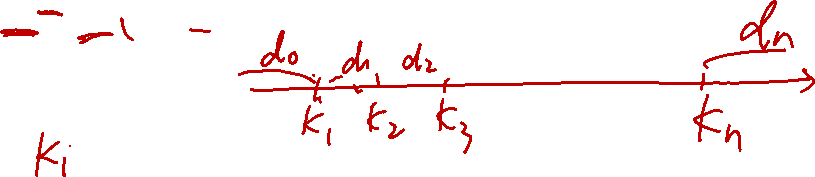 d₀ d₁ d₂ dₙ
K₁ K₂ K₃ Kₙ
Kᵢ